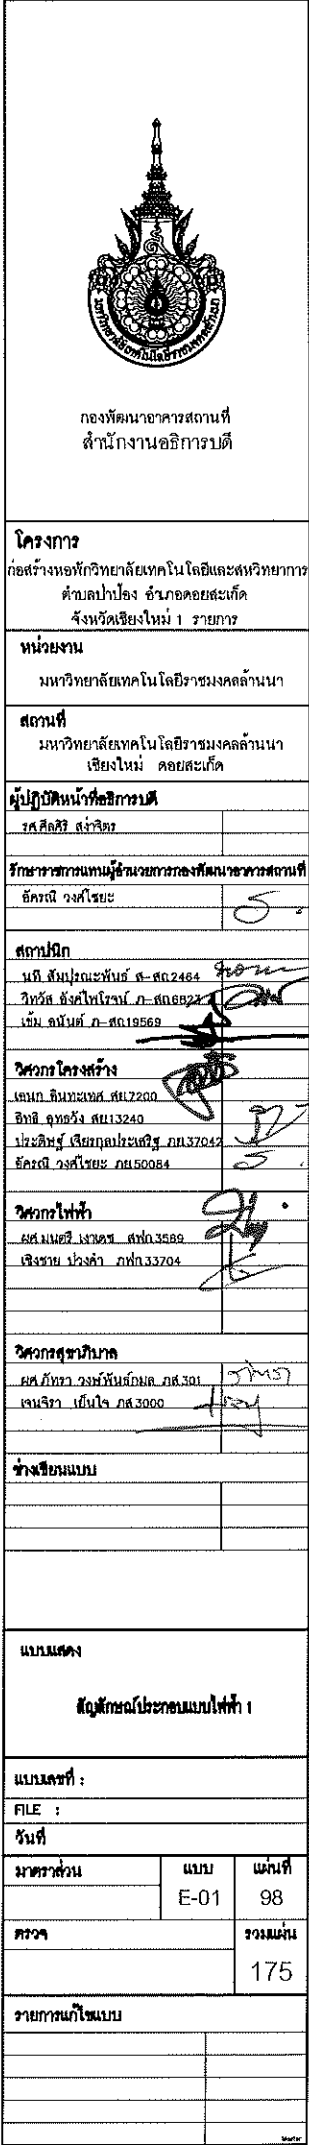 มหาวิทยาลัยเทคโนโลยีราชมงคลล้านนา
กองพัฒนาอาคารสถานที่
สำนักงานอธิการบดี
โครงการ
ก่อสร้างหอพักวิทยาลัยเทคโนโลยีและสหวิทยาการ
ตำบลป่าป้อง อำเภอดอยสะเก็ด
จังหวัดเชียงใหม่ 1 รายการ
หน่วยงาน
มหาวิทยาลัยเทคโนโลยีราชมงคลล้านนา
สถานที่
มหาวิทยาลัยเทคโนโลยีราชมงคลล้านนา
เชียงใหม่ ดอยสะเก็ด
ผู้ปฏิบัติหน้าที่อธิการบดี
รศ.ศีลศิริ สง่าจิตร
รักษาราชการแทนผู้อำนวยการกองพัฒนาอาคารสถานที่
อัครณี วงศ์ไชยะ
สถาปนิก
นที สัมปุรณะพันธ์ ส-สถ2464
วิทวัส อังศ์ไพโรจน์ ภ-สถ6823
เข้ม อนันต์ ภ-สถ19569
วิศวกรโครงสร้าง
เอนก อินทะเทศ สย.7200
อิทธิ อุทธวัง สย13240
ประดิษฐ์ เจียรกุลประเสริฐ ภย.37042
อัครณี วงศ์ไชยะ ภย.50084
วิศวกรไฟฟ้า
ผศ.มนตรี เงาเดช สฟก.3589
เชิงชาย ปวงคำ ภฟก.33704
วิศวกรสุขาภิบาล
ผศ.ภัทรา วงษ์พันธ์กมล ภส.301
เจนจิรา เย็นใจ ภส.3000
ช่างเขียนแบบ
แบบแสดง
สัญลักษณ์ประกอบแบบไฟฟ้า 1
แบบเลขที่ :
FILE :
วันที่
มาตราส่วน แบบ แผ่นที่
E-01 98
ตรวจ รวมแผ่น
175
รายการแก้ไขแบบ
Master